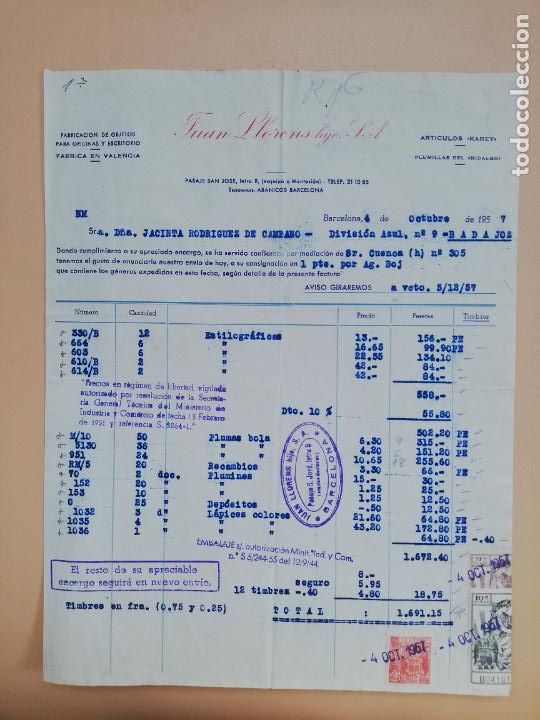 todocoleccion
1ª
Juan Llorens hijo, S.A
FABRICACION DE OBJETOS
PARA OFICINAS Y ESCRITORIO
FABRICA EN VALENCIA
ARTICULOS «KAREY»
PLUMILLAS DEL «HIDALGO»
PASAJE SAN JOSE, letra B, (esquina a Montesión) - TELEF. 21 10 85
ABANICOS BARCELONA
NM
Barcelona, 4 de Octubre de 1957
Sra. Dña. JACINTA RODRIGUEZ DE CAMPANO - División Azul, nº 9 - BADAJOZ
Dando cumplimiento a su apreciado encargo, se ha servido confiarnos por mediación de Sr. Cuenca (h) nº 305
tenemos el gusto de anunciarle nuestro envío de hoy, a su consignación en 1 pte. por Ag. Boj
que contiene los géneros expedidos en esta fecha, según detalle de la presente factura
AVISO GIRAREMOS a vcto. 5/12/57
Número Cantidad Precio Pesetas Timbres
330/B 12 Estilográficas 13.- 156.- PE
664 6 " 16.65 99.90 PE
603 6 " 22.35 134.10
610/B 2 " 42.- 84.- PE
614/B 2 " 42.- 84.- PE
558.-
"Precios en régimen de libertad vigilada
autorizado por resolución de la Secretaría
General Técnica del Ministerio de
Industria y Comercio de fecha 13 Febrero
de 1951 y referencia S. 8264-L."
Dto. 10 % 55.80
502.20 PE
M/10 50 Plumas bola 6.30 315.- PE
5130 36 " 4.20 151.20 PE
951 24 " 10.65 255.60
RM/5 20 Recambios 3.30 66.- PE
70 2 doc. Plumines 15.- 30.-
152 20 " 1.25 25.-
153 10 " 1.25 12.50
0 25 Depósitos -.50 12.50
1032 3 d Lápices colores 21.60 64.80 PE
1035 4 " " 43.20 172.80 PE
1036 1 " " 64.80 PE -.40
JUAN LLORENS hijo, S. A.
Pasaje S. José, letra B
BARCELONA
EMBALAJE s/. autorización Minis. Ind. y Com.
n.º S 6/244-55 del 12/9/44.
1.672.40
El resto de su apreciable
encargo seguirá en nuevo envío.
8.-
seguro 5.95
12 timbres -.40 4.80 18.75
Timbres en fra. (0,75 y 0.25) TOTAL : 1.691.15
- 4 OCT. 1957
- 4 OCT. 1957
- 4 OCT. 1957